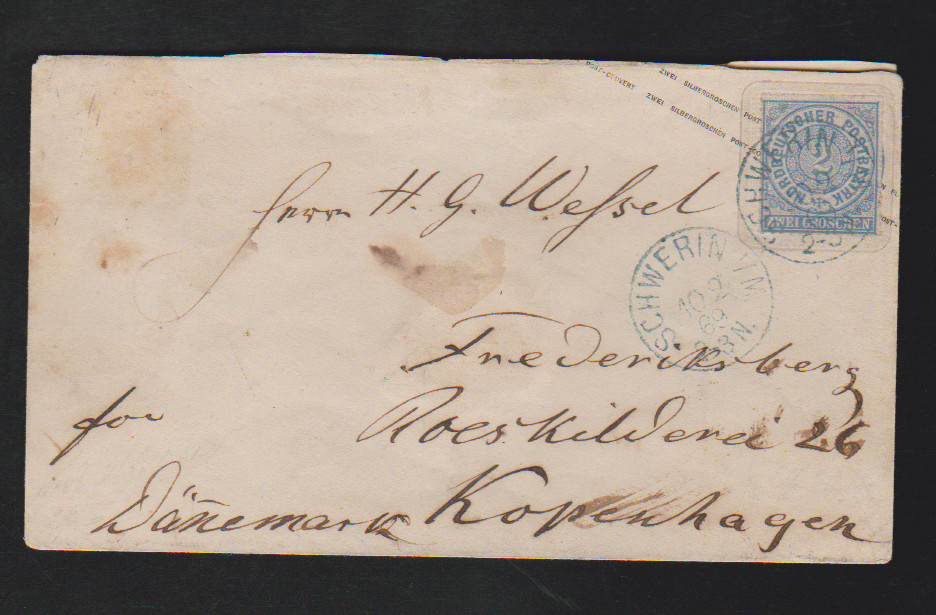 POST-COUVERT ZWEI SILBERGROSCHEN POST-COU
ZWEI SILBERGROSCHEN POST
NORDDEUTSCHER POSTBEZIRK
2
ZWEI GROSCHEN
SCHWERIN I
2-3
SCHWERIN I M.
10 2
69
2-3 N.
Herrn H. G. Weſsel
Frederiksberg
Roeskildevei 26
fro
Dänemark Kopenhagen